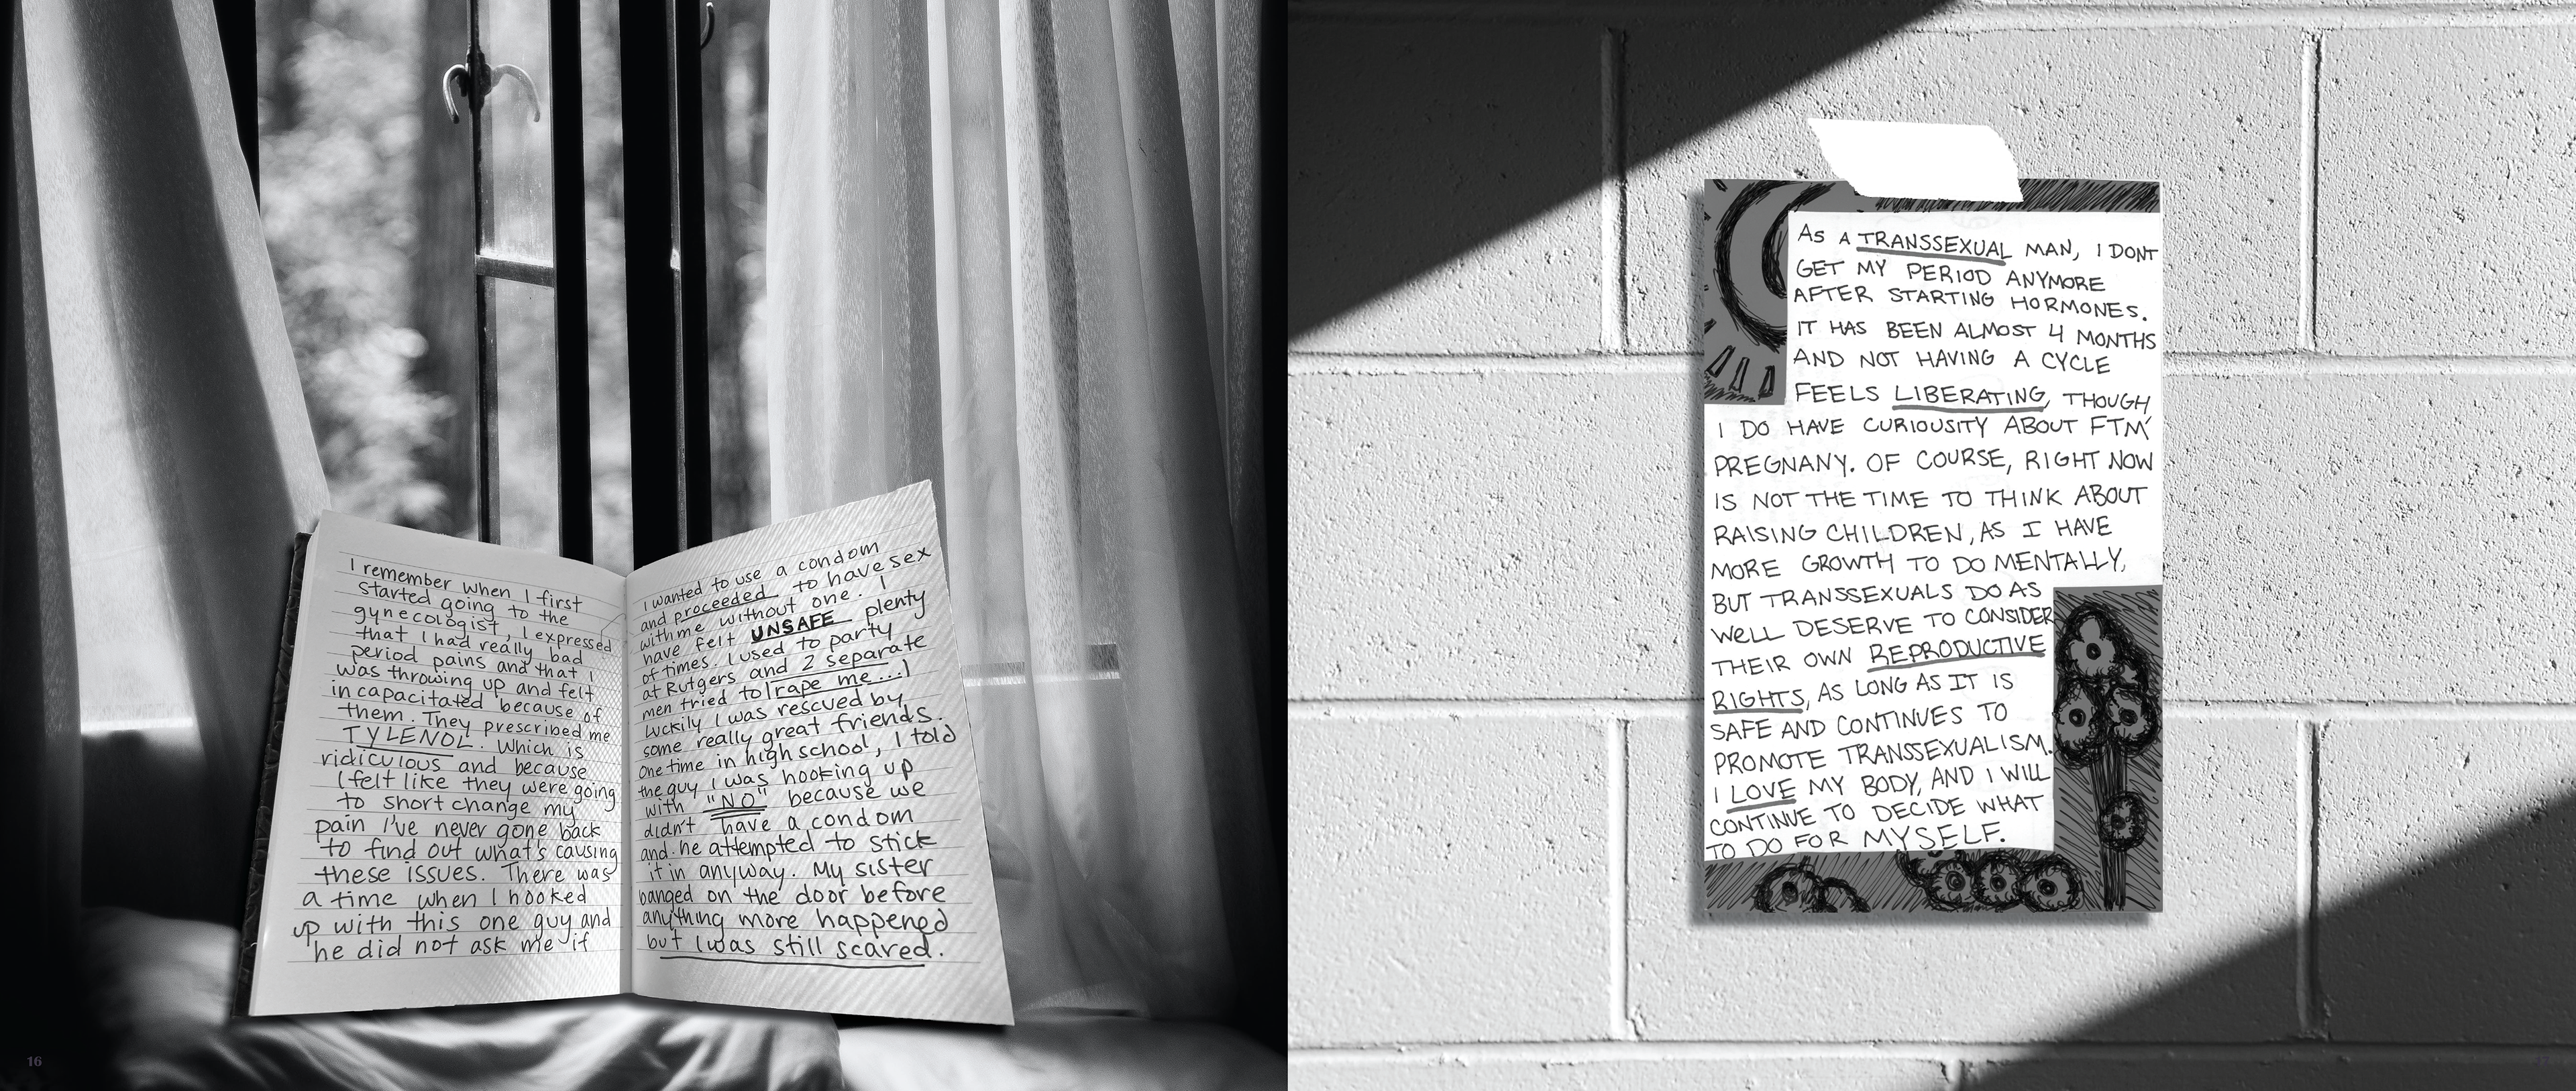 I remember when I first
started going to the
gynecologist, I expressed
that I had really bad
period pains and that I
was throwing up and felt
incapacitated because of
them. They prescribed me
TYLENOL. Which is
ridiculous and because
I felt like they were going
to short change my
pain I've never gone back
to find out what's causing
these issues. There was
a time when I hooked
up with this one guy and
he did not ask me if
I wanted to use a condom
and proceeded to have sex
with me without one. I
have felt UNSAFE plenty
of times. I used to party
at Rutgers and 2 separate
men tried to rape me...
luckily I was rescued by
some really great friends.
One time in high school, I told
the guy I was hooking up
with "NO" because we
didn't have a condom
and he attempted to stick
it in anyway. My sister
banged on the door before
anything more happened
but I was still scared.
16
AS A TRANSSEXUAL MAN, I DONT
GET MY PERIOD ANYMORE
AFTER STARTING HORMONES.
IT HAS BEEN ALMOST 4 MONTHS
AND NOT HAVING A CYCLE
FEELS LIBERATING, THOUGH
I DO HAVE CURIOUSITY ABOUT FTM
PREGNANY. OF COURSE, RIGHT NOW
IS NOT THE TIME TO THINK ABOUT
RAISING CHILDREN, AS I HAVE
MORE GROWTH TO DO MENTALLY,
BUT TRANSSEXUALS DO AS
WELL DESERVE TO CONSIDER
THEIR OWN REPRODUCTIVE
RIGHTS, AS LONG AS IT IS
SAFE AND CONTINUES TO
PROMOTE TRANSSEXUALISM.
I LOVE MY BODY, AND I WILL
CONTINUE TO DECIDE WHAT
TO DO FOR MYSELF.